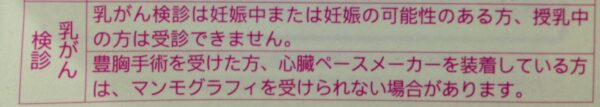 乳がん検診
乳がん検診は妊娠中または妊娠の可能性のある方、授乳中
の方は受診できません。
豊胸手術を受けた方、心臓ペースメーカーを装着している方
は、マンモグラフィを受けられない場合があります。